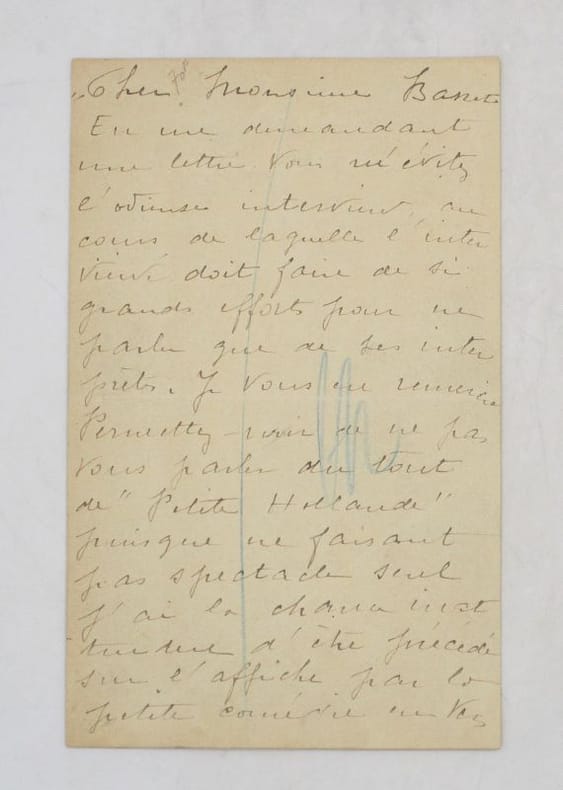 "Cher Monsieur Basset
En me demandant
une lettre vous m'évitez
l'odieuse interview, au
cours de laquelle l'inter
viewé doit faire de si
grands efforts pour ne
parler que de ses inter
prètes. Je vous en remercie
Permettez-moi de ne pas
vous parler du tout
de "Petite Hollande"
puisque ne faisant
pas spectacle seul
j'ai la chance inat
tendue d'être précédé
sur l'affiche par la
petite comédie en vers